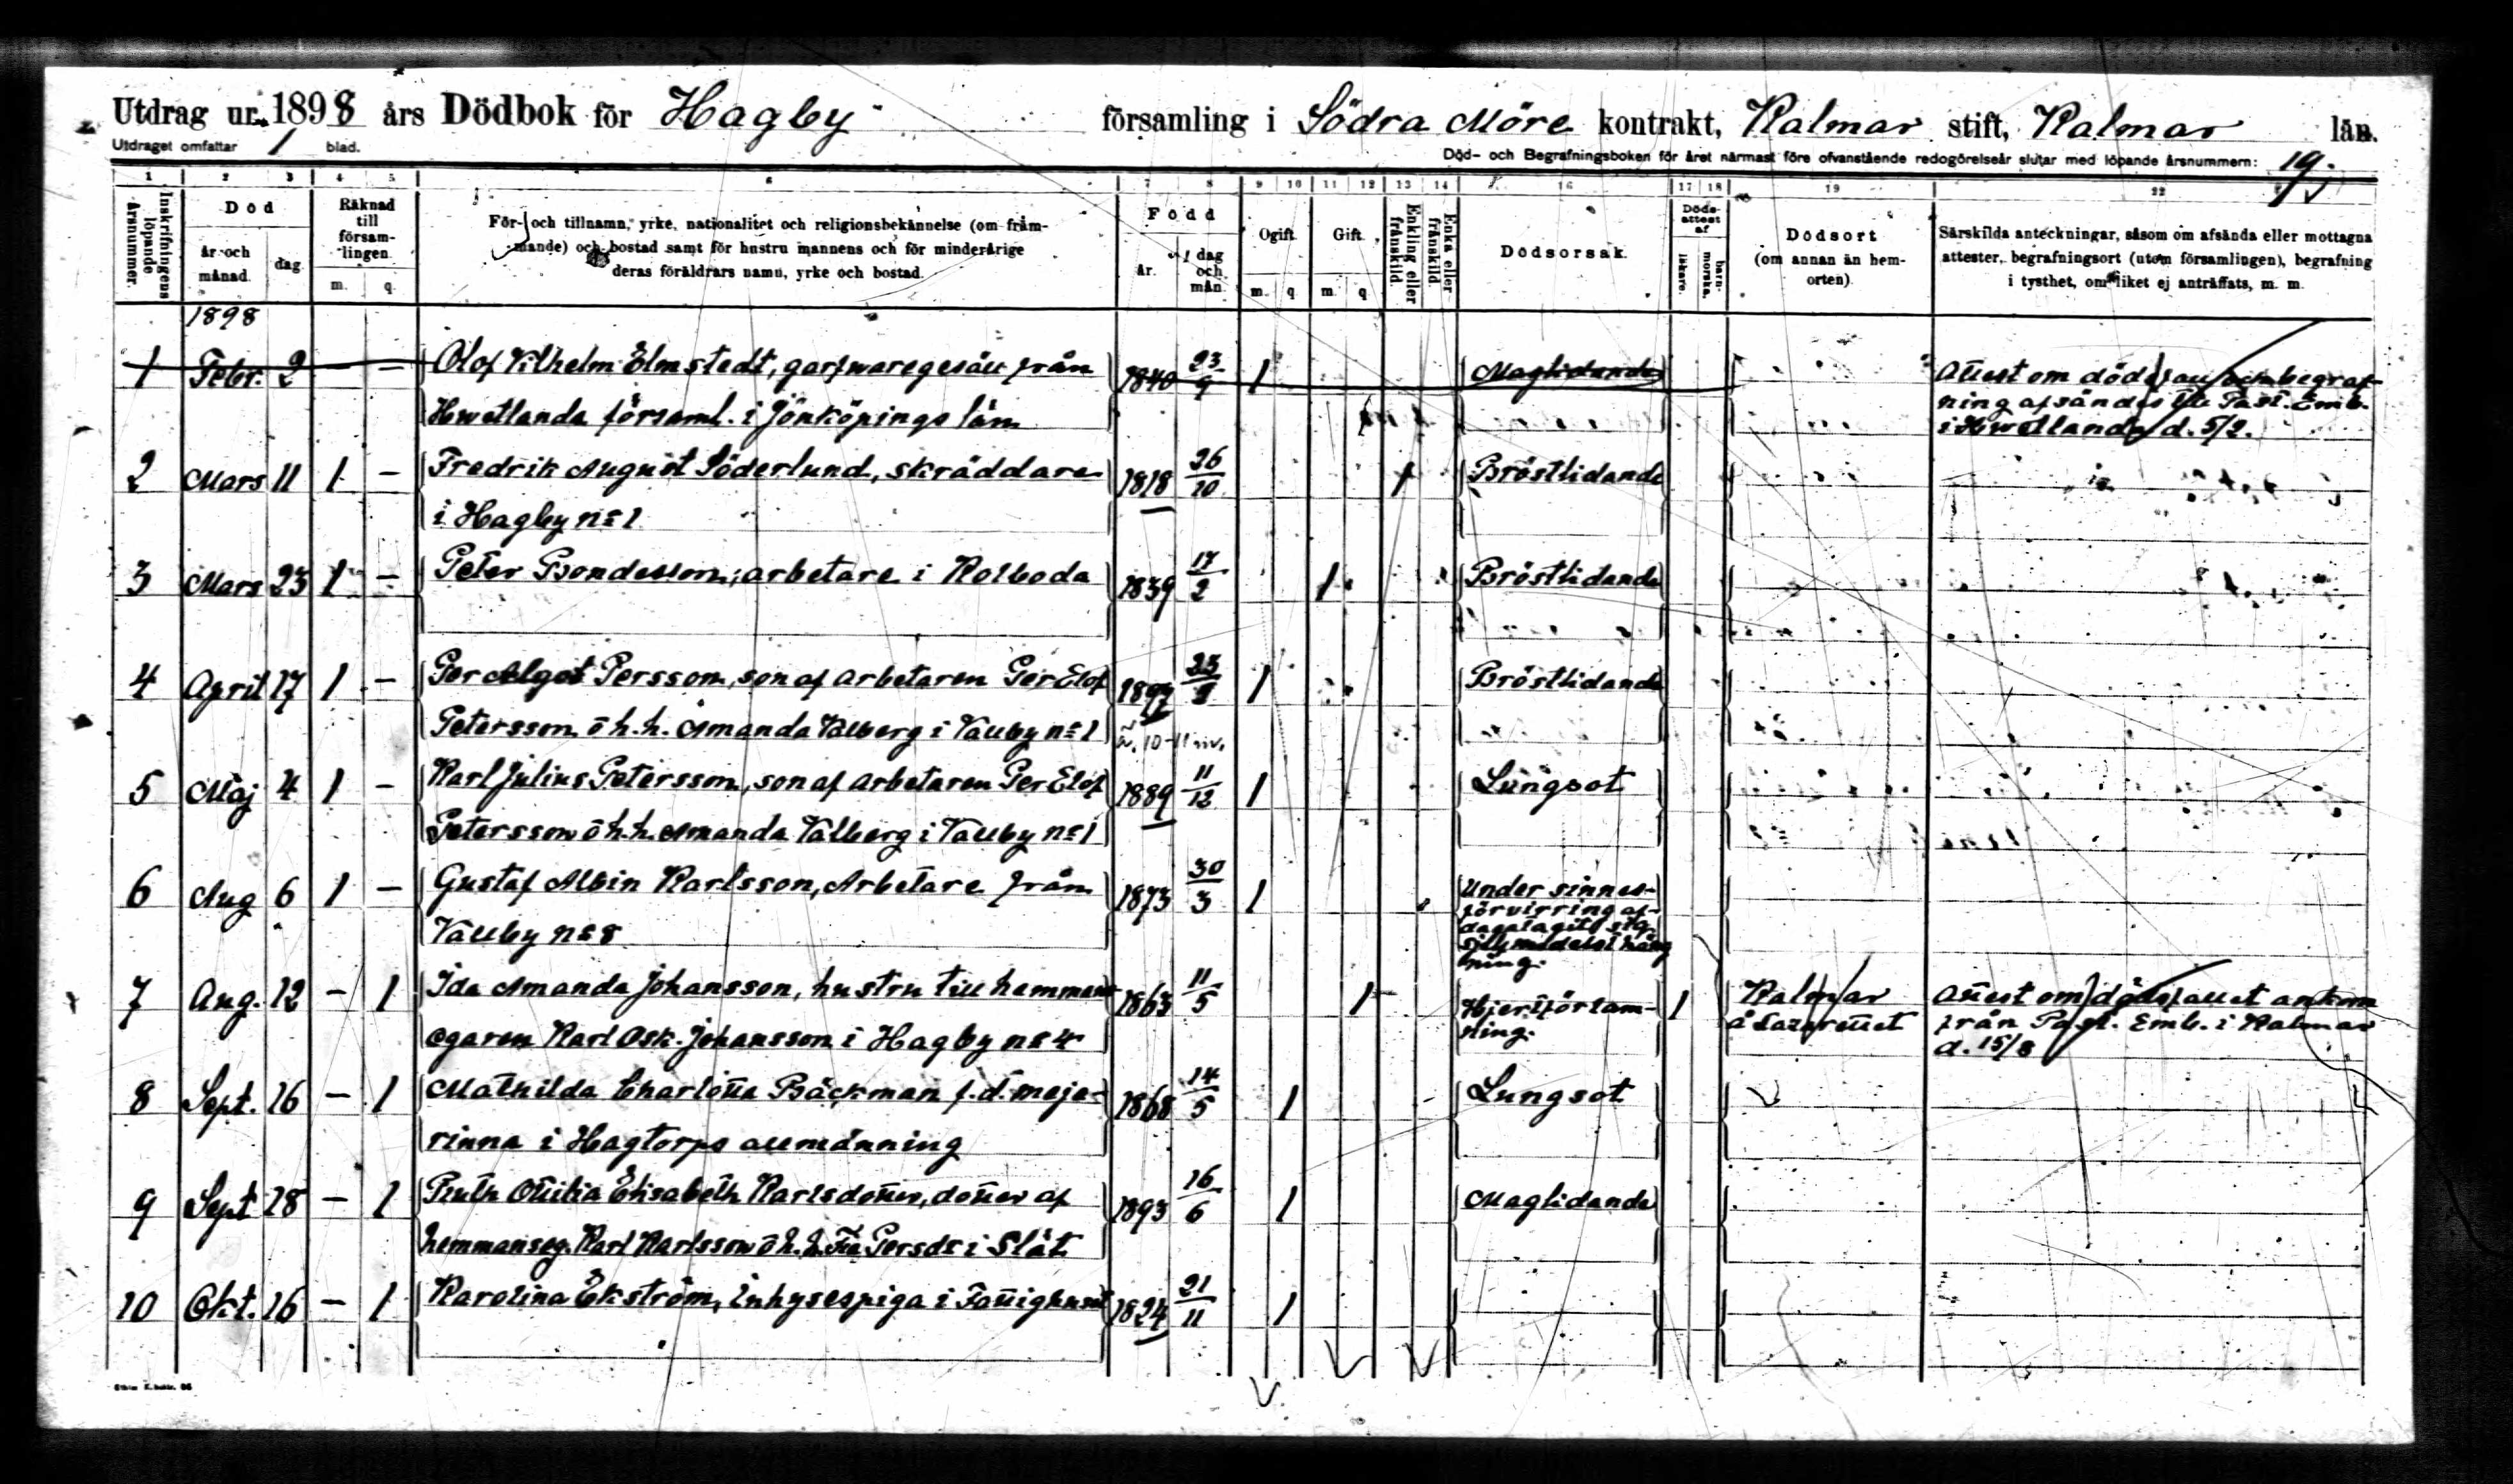 Utdrag ur 1898 års Dödbok för Hagby församling i Södra Möre kontrakt, Kalmar stift, Kalmar län.
Utdraget omfattar 1 blad.
Död- och Begrafningsboken för året närmast före ofvanstående redogörelseår slutar med löpande årsnummern: 19.
1 2 3 4 5 6 7 8 9 10 11 12 13 14 16 17 18 19 22
Inskrifningens löpande årsnummer.
Död
år och månad. dag.
Räknad till församlingen
m. q.
För- och tillnamn, yrke, nationalitet och religionsbekännelse (om främmande) och bostad samt för hustru mannens och för minderårige deras föräldrars namn, yrke och bostad.
Född
år. dag och mån.
Ogift m. q.
Gift m. q.
Enkling eller frånskild
Enka eller frånskild
Dödsorsak.
Dödsattest af
läkare. barnmorska.
Dödsort (om annan än hemorten)
Särskilda anteckningar, såsom om afsända eller mottagna attester, begrafningsort (utom församlingen), begrafning i tysthet, om liket ej anträffats, m. m.
1898
1 Febr. 2 – – Olof Vilhelm Elmstedt, garfvaregesäll från 1840 23/9 1 Maglidande Attest om dödsfall och begraf-
Hwetlanda församl. i Jönköpings län ning afsändes till Past. Emb.
i Hwetlanda d. 5/2.
2 Mars 11 1 – Fredrik August Söderlund, skräddare 1818 26/10 1 Bröstlidande
i Hagby n:o 1
3 Mars 23 1 – Peter Bondesson, arbetare i Kolboda 1839 17/2 1 Bröstlidande
4 April 17 1 – Per Algot Persson, son af Arbetaren Per Elof 1897 1 Bröstlidande
Petersson o h. h. Amanda Valberg i Vallby n:o 1
5 Maj 4 1 – Karl Julius Petersson, son af Arbetaren Per Elof 1889 11/12 1 Lungsot
Petersson o h. h. Amanda Valberg i Vallby n:o 1
6 Aug 6 1 – Gustaf Albin Karlsson, Arbetare från 1873 30/3 1 Under sinnes-
förvirring af-
dagatagit sig
Vallby n:o 8 sjelf medelst häng
ning.
7 Aug. 12 – 1 Ida Amanda Johansson, hustru till hemmans- 1863 11/5 1 Hjertförlam- 1 Kalmar Attest om dödsfallet ankom
egaren Karl Osk. Johansson i Hagby n:o 4 ning. å Lazarettet från Past. Emb. i Kalmar
d. 15/8
8 Sept. 16 – 1 Mathilda Charlotta Bäckman f. d. meje- 1868 14/5 1 Lungsot
rinna i Hagtorps allmänning
9 Sept 18 – 1 Ruth Ottilia Elisabeth Karlsdotter, dotter af 1893 16/6 1 Maglidande
hemmanseg. Karl Karlsson o h. h. Persdr i Slät
10 Okt. 16 – 1 Karolina Ekström, Inhysespiga i Fattighuset 1824 21/11 1